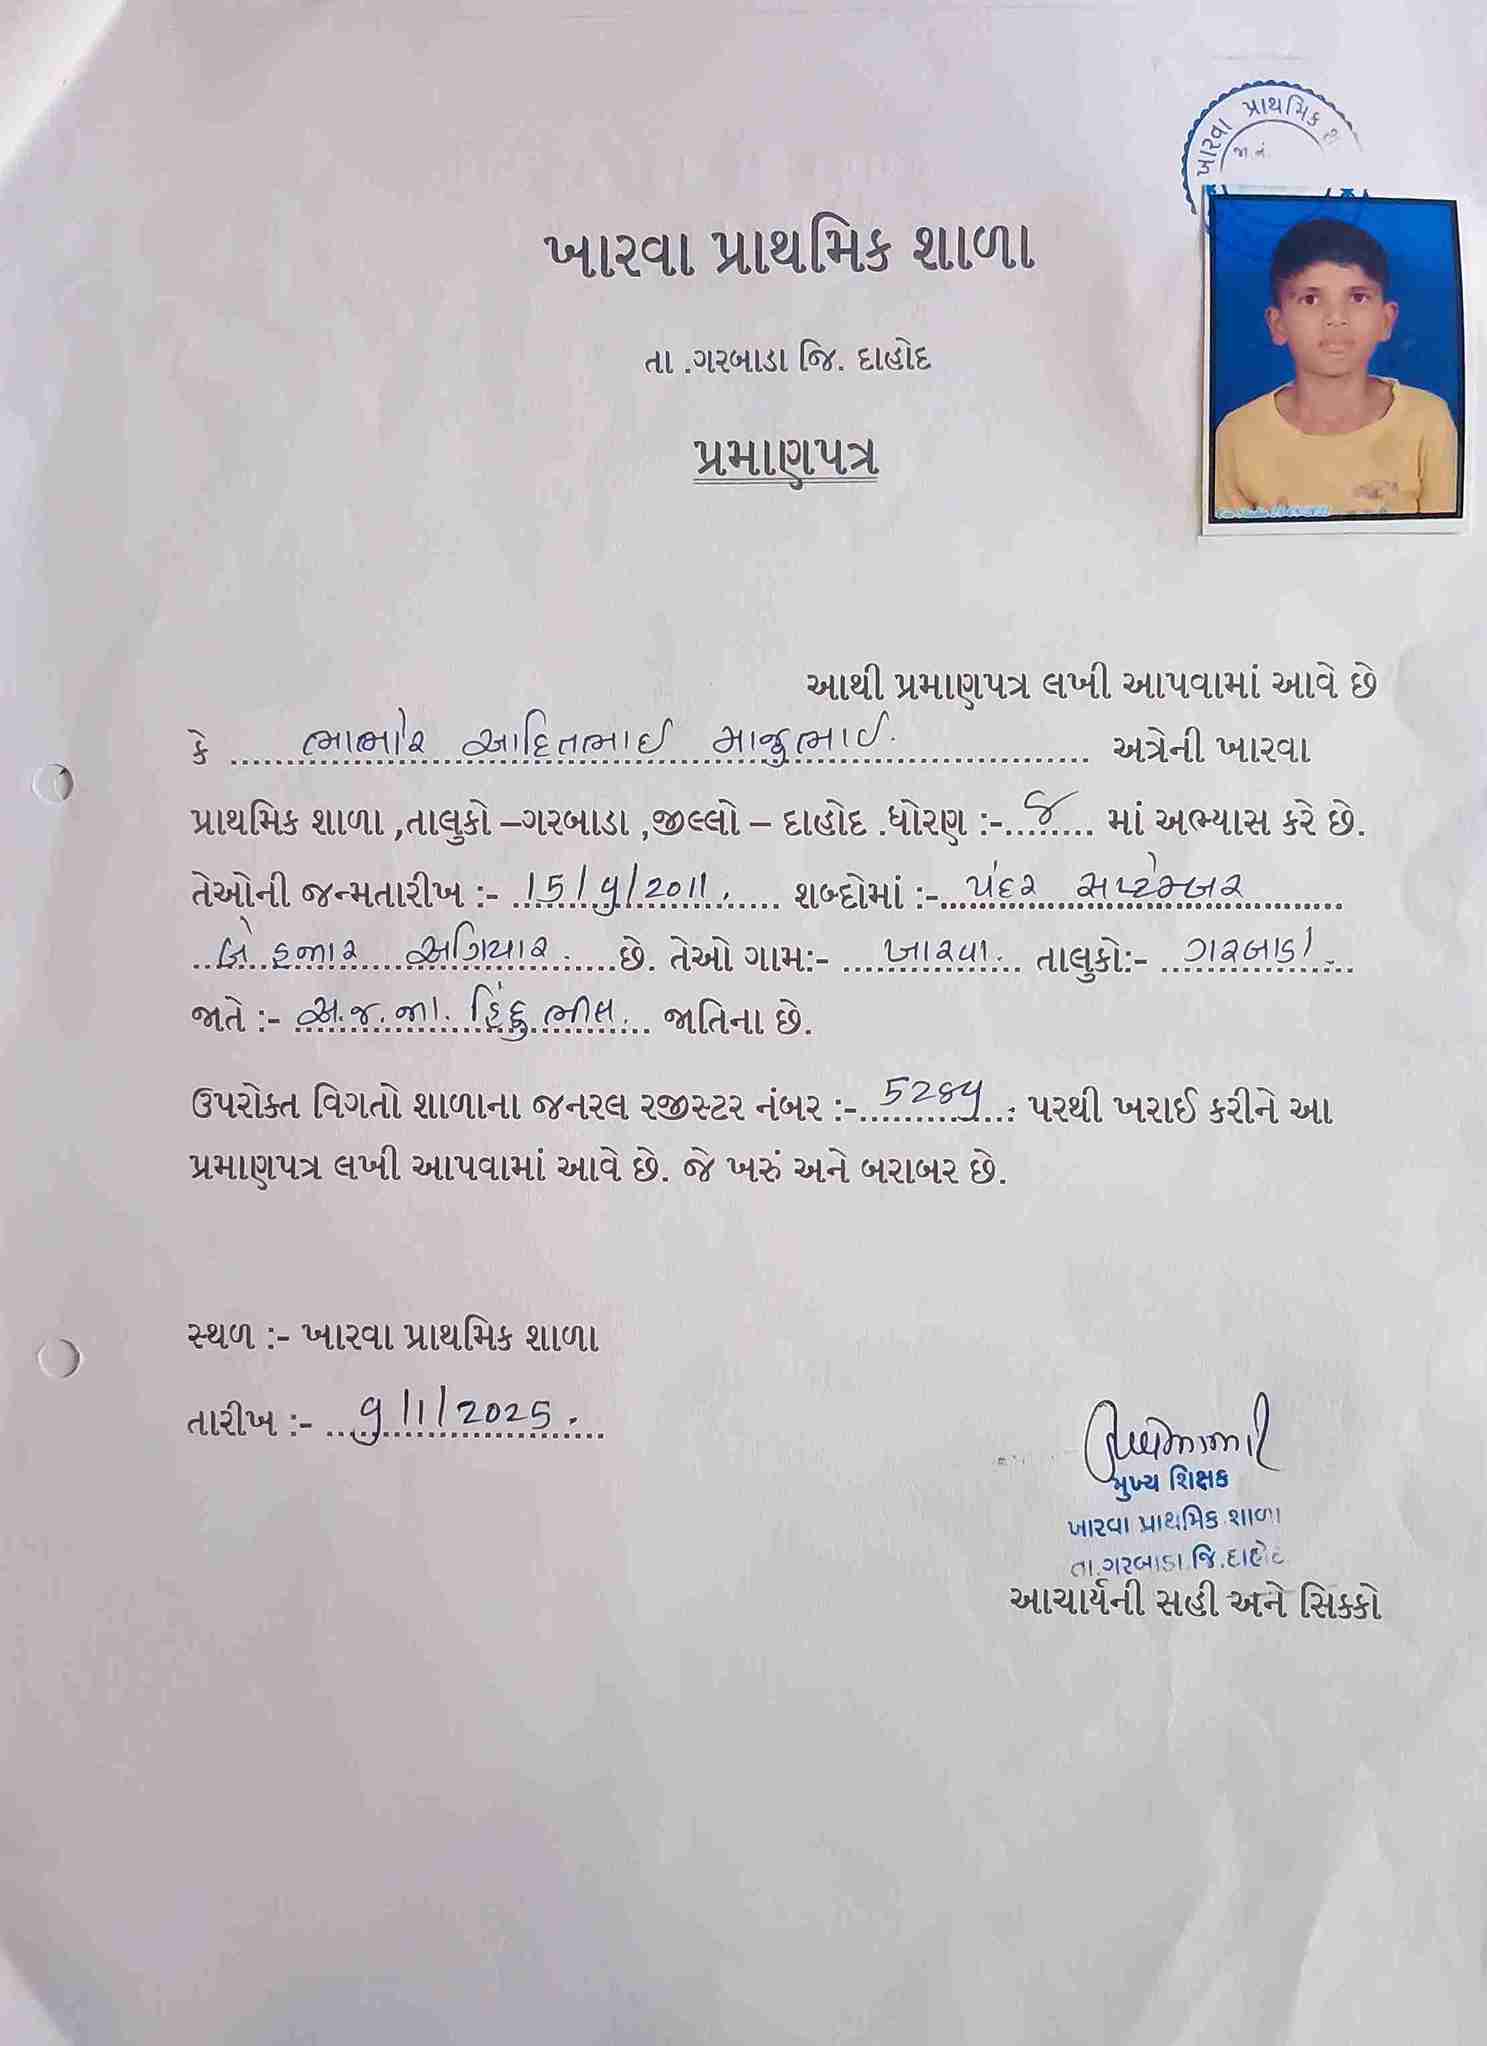 ખારવા પ્રાથમિક શા
જા.નં.
ખારવા પ્રાથમિક શાળા
તા .ગરબાડા જિ. દાહોદ
પ્રમાણપત્ર
આથી પ્રમાણપત્ર લખી આપવામાં આવે છે
કે ભાભોર આદિતભાઈ માજુભાઈ. અત્રેની ખારવા
પ્રાથમિક શાળા ,તાલુકો –ગરબાડા ,જીલ્લો – દાહોદ .ધોરણ :- ૪ માં અભ્યાસ કરે છે.
તેઓની જન્મતારીખ :- 15/9/2011. શબ્દોમાં :- પંદર સપ્ટેમ્બર
બે હજાર અગિયાર. છે. તેઓ ગામ:- ખારવા. તાલુકો:- ગરબાડા.
જાતે :- અ.જ.જા. હિંદુ ભીલ. જાતિના છે.
ઉપરોક્ત વિગતો શાળાના જનરલ રજીસ્ટર નંબર :- પરથી ખરાઈ કરીને આ
પ્રમાણપત્ર લખી આપવામાં આવે છે. જે ખરું અને બરાબર છે.
સ્થળ :- ખારવા પ્રાથમિક શાળા
તારીખ :- 9/1/2025.
મુખ્ય શિક્ષક
ખારવા પ્રાથમિક શાળા
તા.ગરબાડા જિ.દાહોદ
આચાર્યની સહી અને સિક્કો